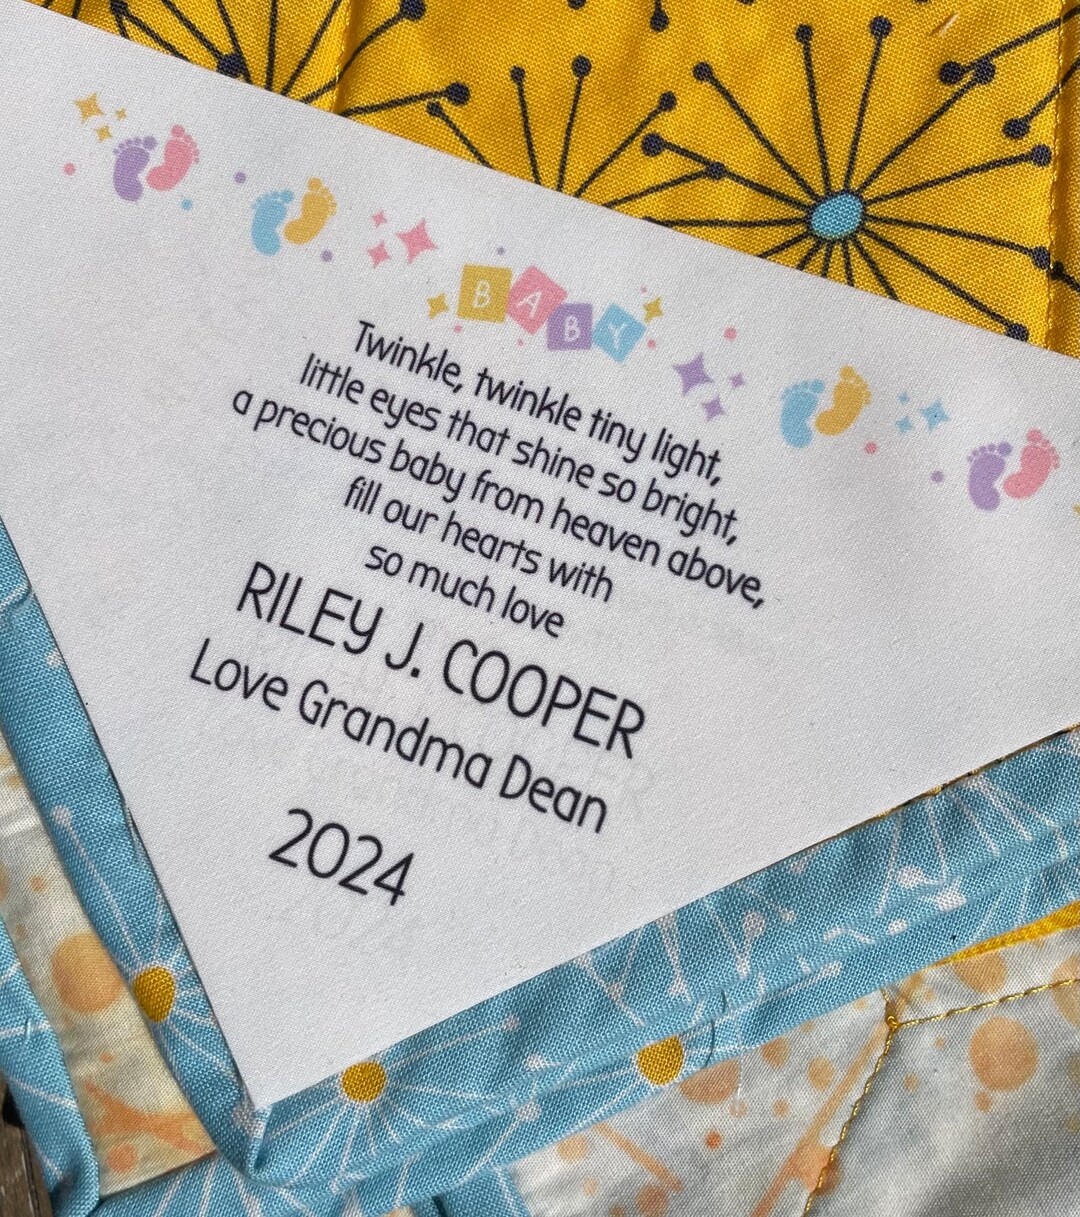 BABY
Twinkle, twinkle tiny light,
little eyes that shine so bright,
a precious baby from heaven above,
fill our hearts with
so much love
RILEY J. COOPER
Love Grandma Dean
2024